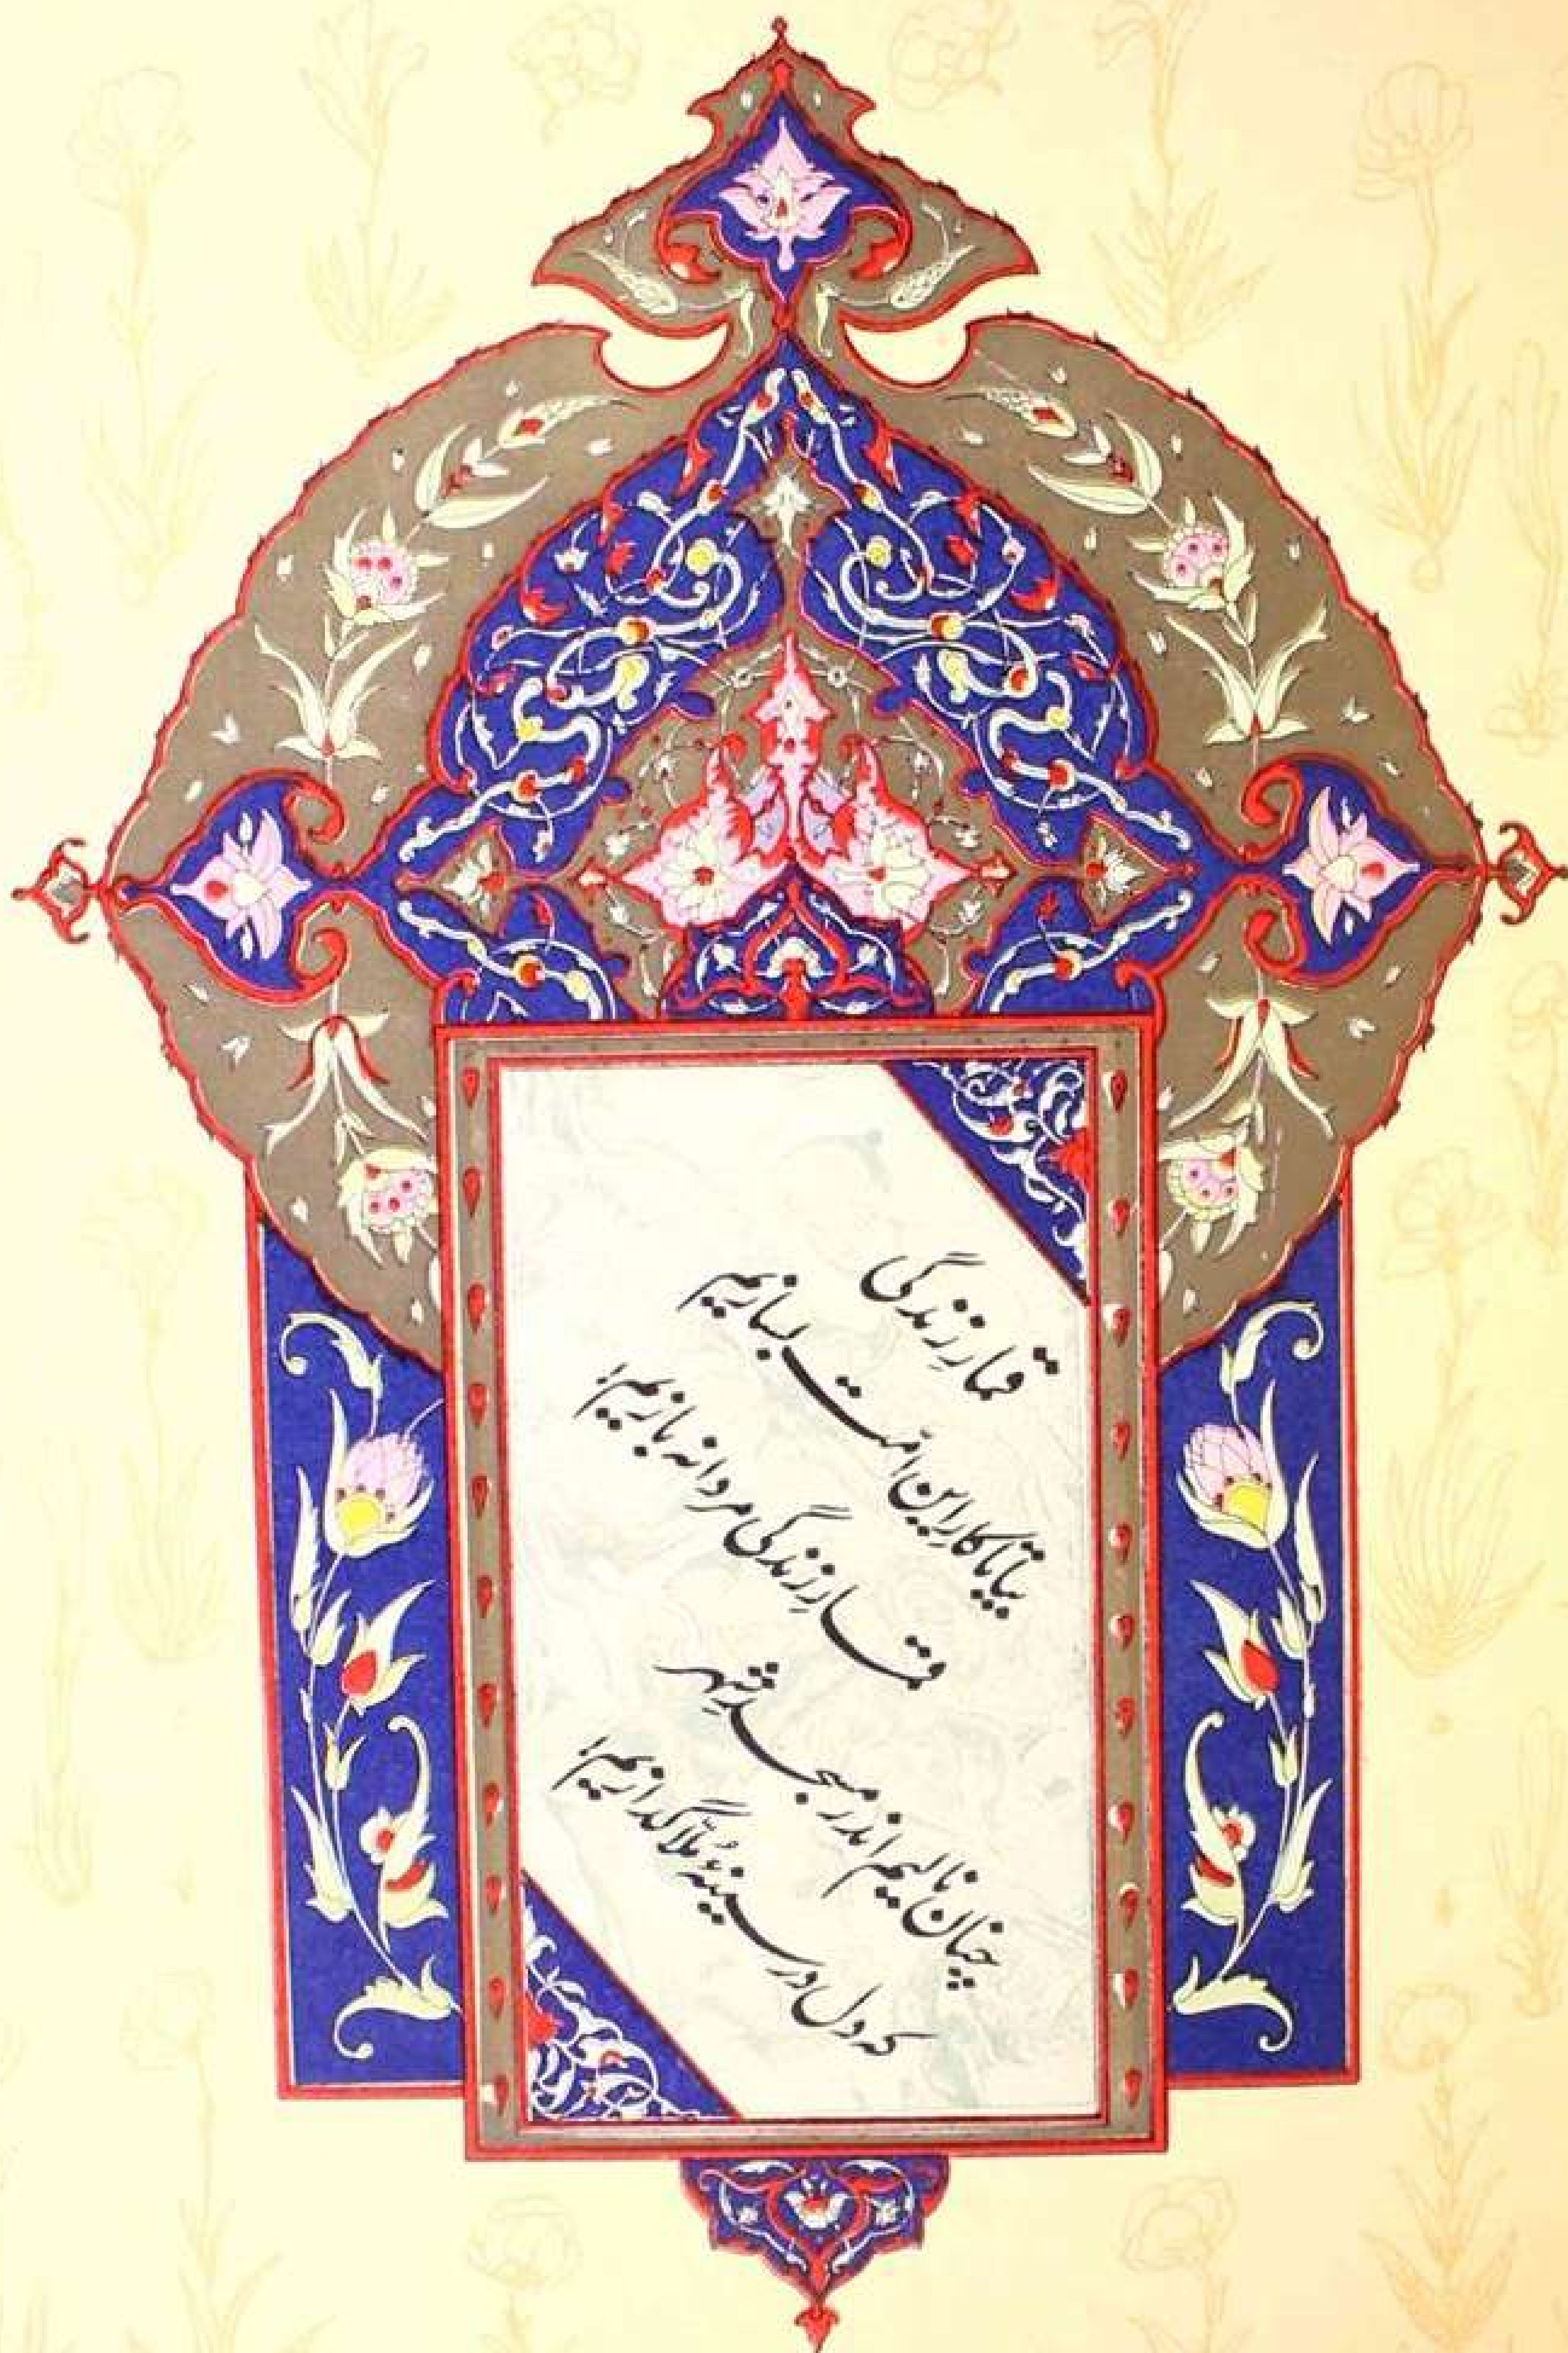 قمارِ زندگی
بیا تا کارِ این امّت بسازیم
قمارِ زندگی مردانه بازیم!
چنان نالیم اندر مسجدِ شهر
که دل در سینۀ مُلّا گدازیم!